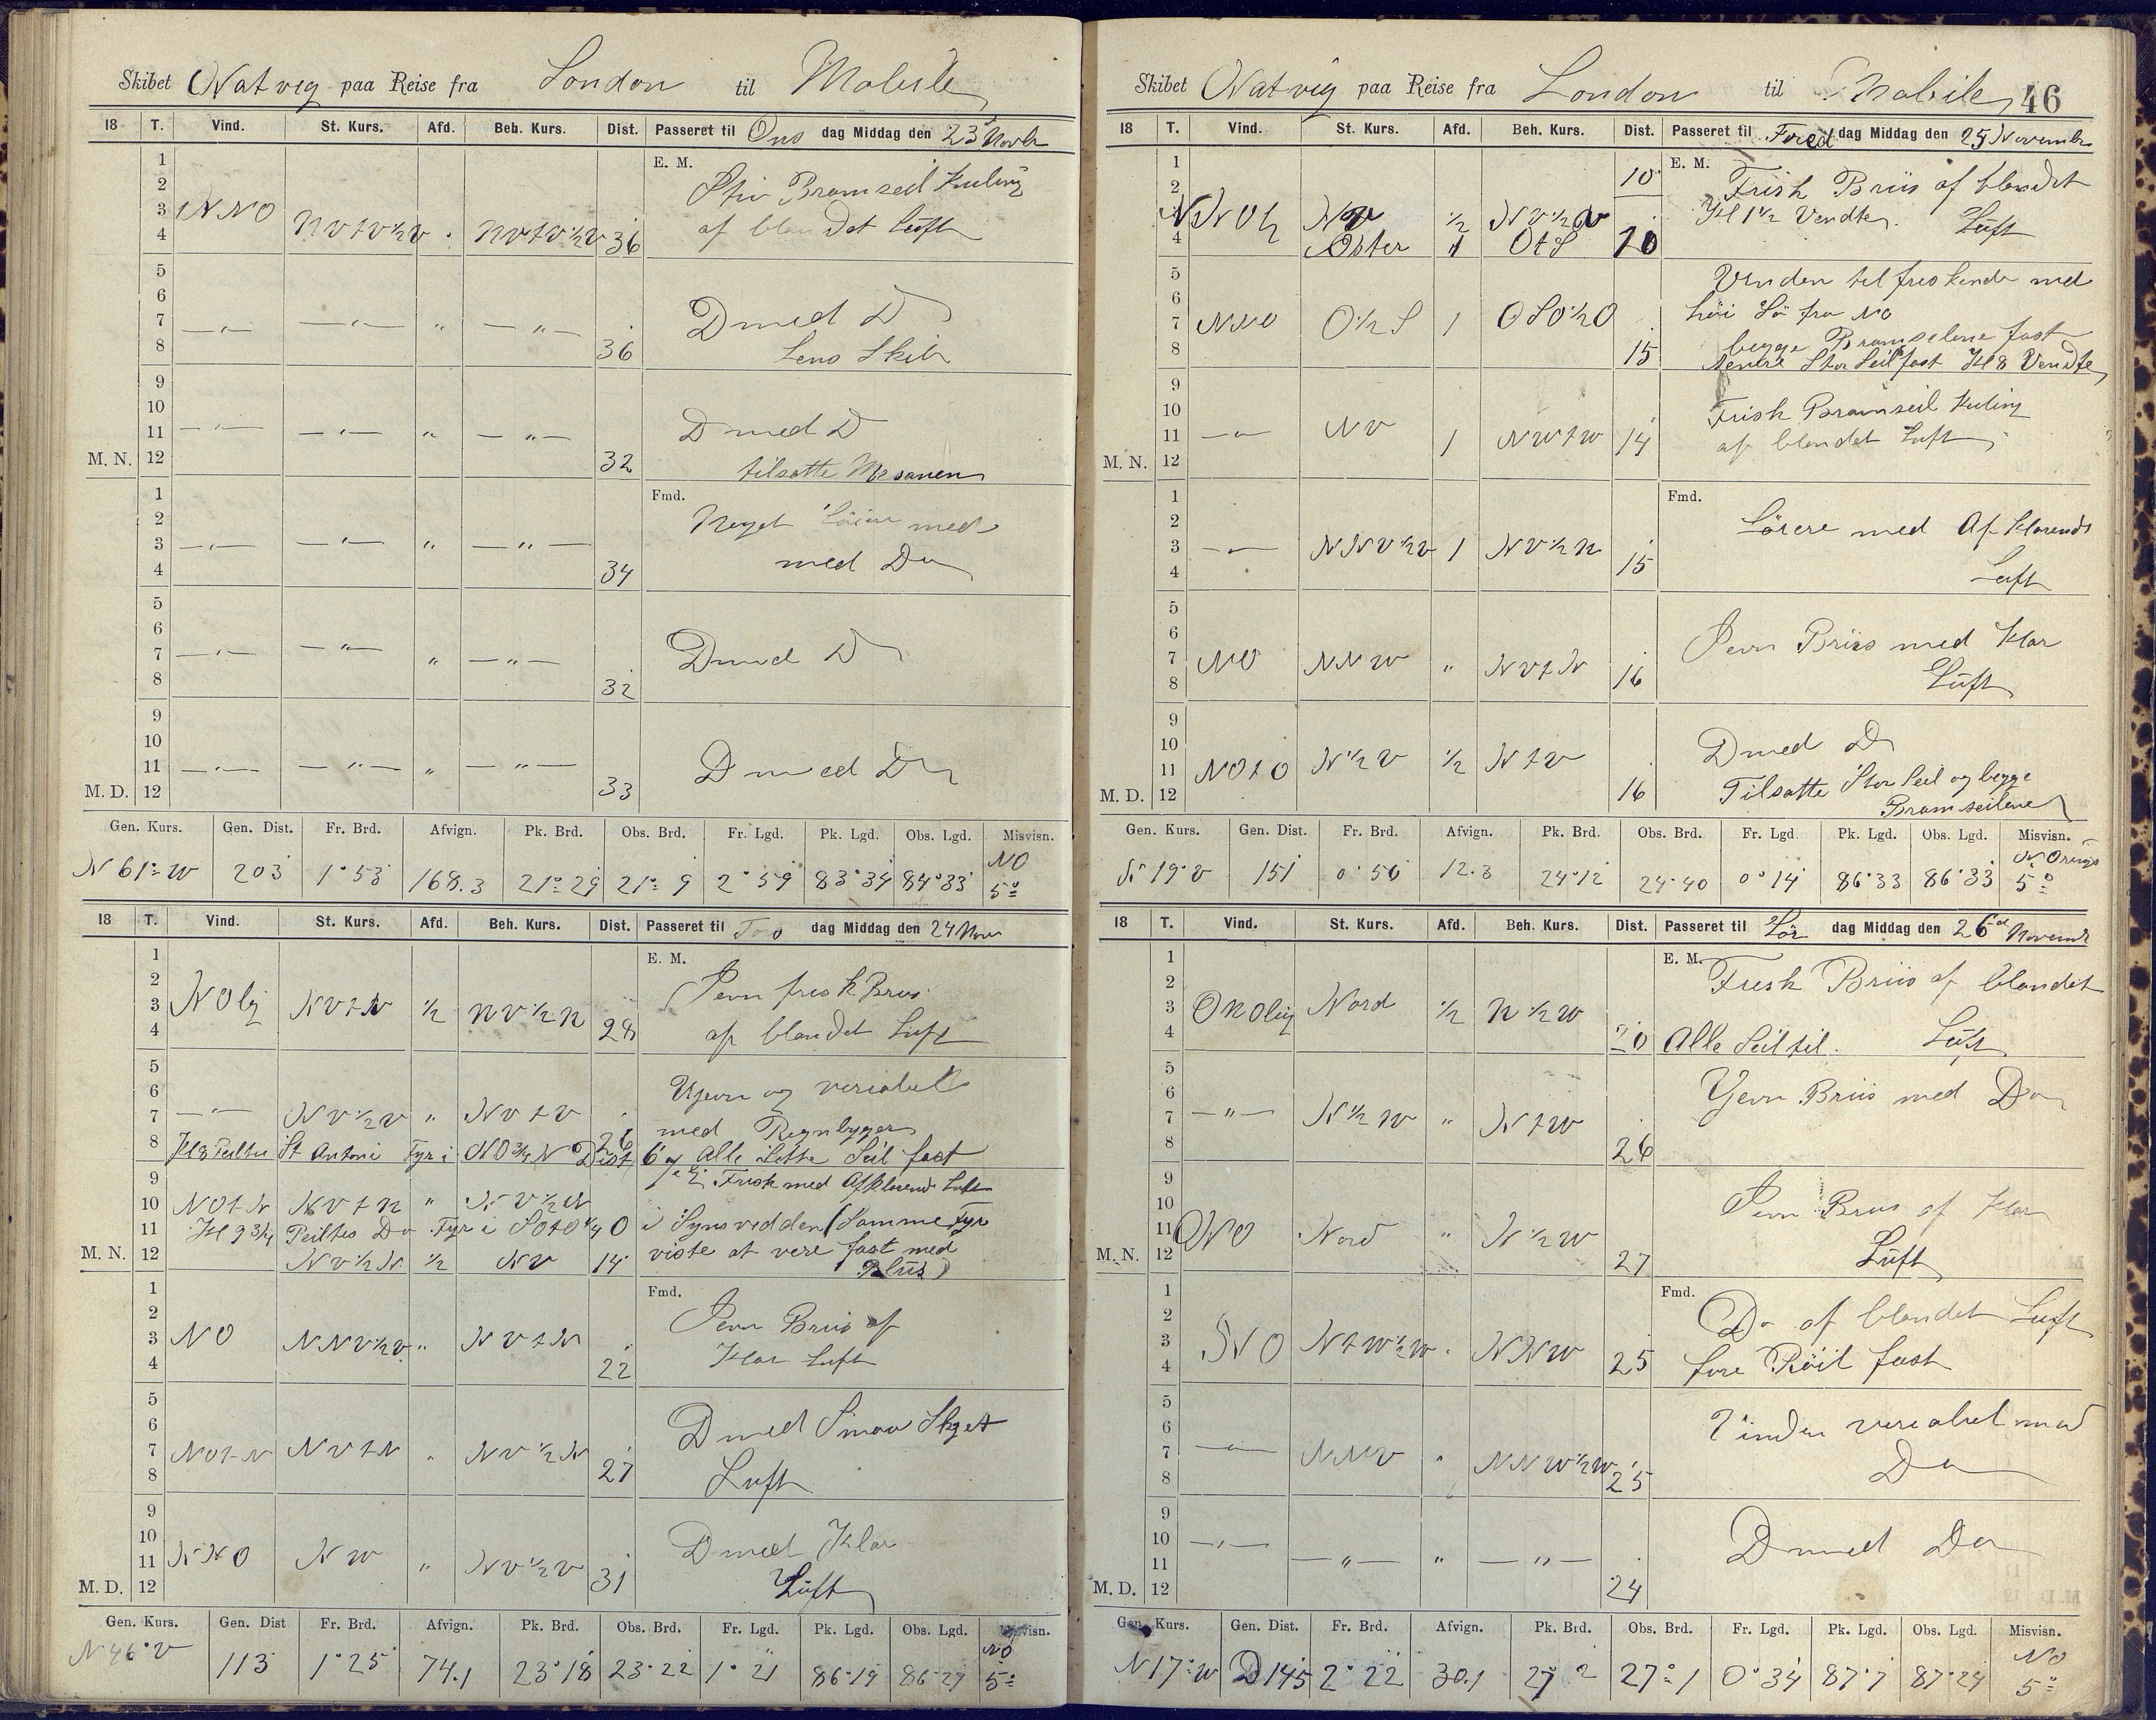 Skibet Natvig paa Reise fra London til Mobile
18 T. Vind. St. Kurs. Afd. Beh. Kurs. Dist. Passeret til Ons dag Middag den 23 Novbr
E. M.
1
2 Stiv Bramseil Kuling
3 NNO
4 NVtV½V " NVtV½V 36 af blandet Luft
5
6
7 —"— —"— " —"— D med D
8 36 Lens Skib
9
10
11 —"— —"— " —"— D med D
M. N. 12 32 tilsatte Mesanen
Fmd.
1
2 Noget Löiere med
3 —"— —"— " —"—
4 34 med Do
5
6
7 —"— —"— " —"— D med D
8 32
9
10
11 —"— —"— " —"— D med Do
M. D. 12 33
Gen. Kurs. Gen. Dist. Fr. Brd. Afvign. Pk. Brd. Obs. Brd. Fr. Lgd. Pk. Lgd. Obs. Lgd. Misvisn.
N 61° W 203 1° 53 168.3 21° 29 21° 9 2° 59 83° 34 84° 33 NO 5°
18 T. Vind. St. Kurs. Afd. Beh. Kurs. Dist. Passeret til Tors dag Middag den 24 Nov
E. M.
1
2 Jevn fresk Briis
3 NOlig NVtN ½ NV½N
4 28 af blandet Luft
5
6 Ujevn og veriabel
7 —"— NV½V " NVtV 26 med Regnbyger
8 Kl 8 Peiltes St Antoni Fyr i NO¾N Dist 6 Alle Lette Seil fast
9 Frisk med Afklarende Luft
10 NOtN NVtN " NV½N
11 Kl 9¾ Peiltes Do Fyr i SOtO¼O i Synsvidden (Samme Fyr
M. N. 12 NV½N ½ NV 14 viste at vere fast med
Blüs)
Fmd.
1
2 Jevn Briis af
3 NO NNV½V " NVtN
4 22 Klar Luft
5
6 D med Smaa Skyet
7 NOtN NVtN " NV½N
8 27 Luft
9
10 D med Klar
11 NNO NW " NV½V
M. D. 12 31 Lüft
Gen. Kurs. Gen. Dist Fr. Brd. Afvign. Pk. Brd. Obs. Brd. Fr. Lgd. Pk. Lgd. Obs. Lgd. Misvisn.
N 46° V 113 1° 25 74.1 23° 18 23° 22 1° 21 86° 19 86° 27 NO 5°
Skibet Natvig paa Reise fra London til Mobile 46
18 T. Vind. St. Kurs. Afd. Beh. Kurs. Dist. Passeret til Fred dag Middag den 25 November
E. M.
1 10
2 Frisk Briis af blandet
3 NNO NV ½ NV½V Kl 1½ Vendte Lüft
4 Öster 1 OtS 20
5 Vinden tilfreskende med
6 höi Sö fra NO
7 NNO O½S 1 OSO½O begge Bramseilene fast
8 15 Nedre Stor Seil fast Kl 8 Vendte
9
10 Frisk Bramseil Kuling
11 —"— NV 1 NWtW 14 af blandet Luft
M. N. 12
Fmd.
1
2 Löiere med Afklarende
3 —"— NNV½V 1 NV½N
4 15 Luft
5
6 Jevn Briis med Klar
7 NO NNW " NVtN
8 16 Lüft
9
10 D med D
11 NOtO N½V ½ NtV Tilsatte Stor Seil og begge
M. D. 12 16 Bramseilene
Gen. Kurs. Gen. Dist. Fr. Brd. Afvign. Pk. Brd. Obs. Brd. Fr. Lgd Pk. Lgd. Obs. Lgd. Misvisn.
N 19° V 151 0° 50 12.3 24° 12 24° 40 0° 14 86° 33 86° 33 5°
18 T. Vind. St. Kurs. Afd. Beh. Kurs. Dist. Passeret til Lör dag Middag den 26 Novemb
E. M.
1
2 Fresk Briis af blandet
3 ONOlig Nord ½ N½W
4 20 Alle Seil til. Lüft
5
6 Jevn Briis med Do
7 —"— N½W " NtW
8 26
9
10 Jevn Briis af Klar
11 ONO Nord " N½W
M. N. 12 27 Lüft
Fmd.
1
2 Do af blandet Luft
3 NO NtW½W " NNW
4 25 fore Röil fast
5
6 Vinden veriabel med
7 —"— NNV " NNW½W
8 25 Do
9
10 —"— D med Do
11 —"— " —"—
M. D. 12 24
Gen. Kurs. Gen. Dist. Fr. Brd. Afvign. Pk. Brd. Obs. Brd. Fr. Lgd. Pk. Lgd. Obs. Lgd. Misvisn.
N 17° W D 145 2° 22 30.1 27° 2 27° 1 0° 34 87° 7 87° 24 NO 5°